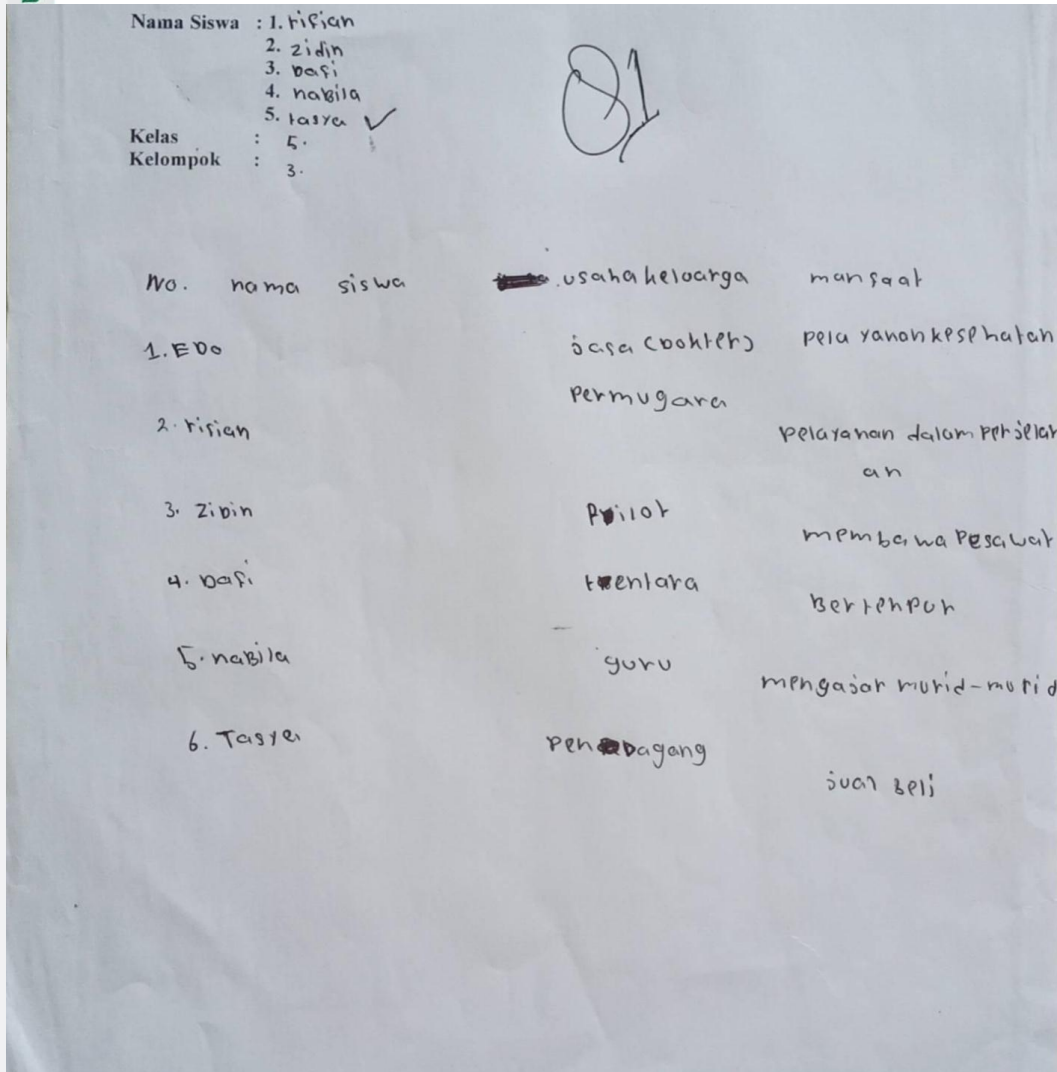 Nama Siswa : 1. rifian
2. zidin
3. Dafi
4. nabila
5. tasya ✓
Kelas : 5.
Kelompok : 3.
81
No. nama siswa usaha keloarga manfaat
1. EDo jasa (Dokter) pela yanan kesehatan
2. rifian Permugara pelayanan dalam perjelan
an
3. ZiDin Pilot membawa Pesawat
4. Dafi tentara Bertenpur
5. naBila guru mengajar murid-murid
6. Tasya PenDagang jual Beli